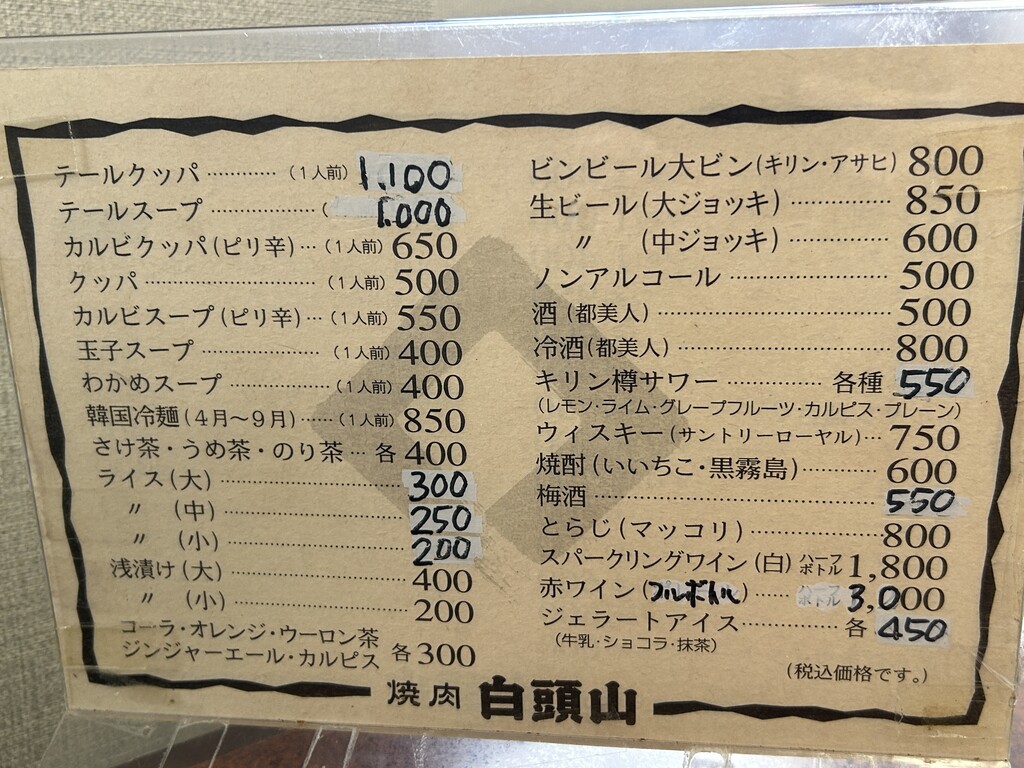 テールクッパ…………(1人前)1,100
テールスープ………………( 1,000
カルビクッパ(ピリ辛)…(1人前)650
クッパ………………………(1人前)500
カルビスープ(ピリ辛)…(1人前)550
玉子スープ…………………(1人前)400
わかめスープ………………(1人前)400
韓国冷麺(4月～9月)……(1人前)850
さけ茶・うめ茶・のり茶…各400
ライス(大)………………………300
〃 (中)………………………250
〃 (小)………………………200
浅漬け(大)………………………400
〃 (小)………………………200
コーラ・オレンジ・ウーロン茶
ジンジャーエール・カルピス 各300
ビンビール大ビン(キリン・アサヒ)800
生ビール(大ジョッキ)……………850
〃 (中ジョッキ)……………600
ノンアルコール……………………500
酒(都美人)…………………………500
冷酒(都美人)………………………800
キリン樽サワー……………各種 550
(レモン・ライム・グレープフルーツ・カルピス・プレーン)
ウィスキー(サントリーローヤル)…750
焼酎(いいちこ・黒霧島)…………600
梅酒…………………………………550
とらじ(マッコリ)…………………800
スパークリングワイン(白)ハーフボトル1,800
赤ワイン(フルボトル)……ハーフボトル3,000
ジェラートアイス……………各 450
(牛乳・ショコラ・抹茶)
(税込価格です。)
焼肉 白頭山